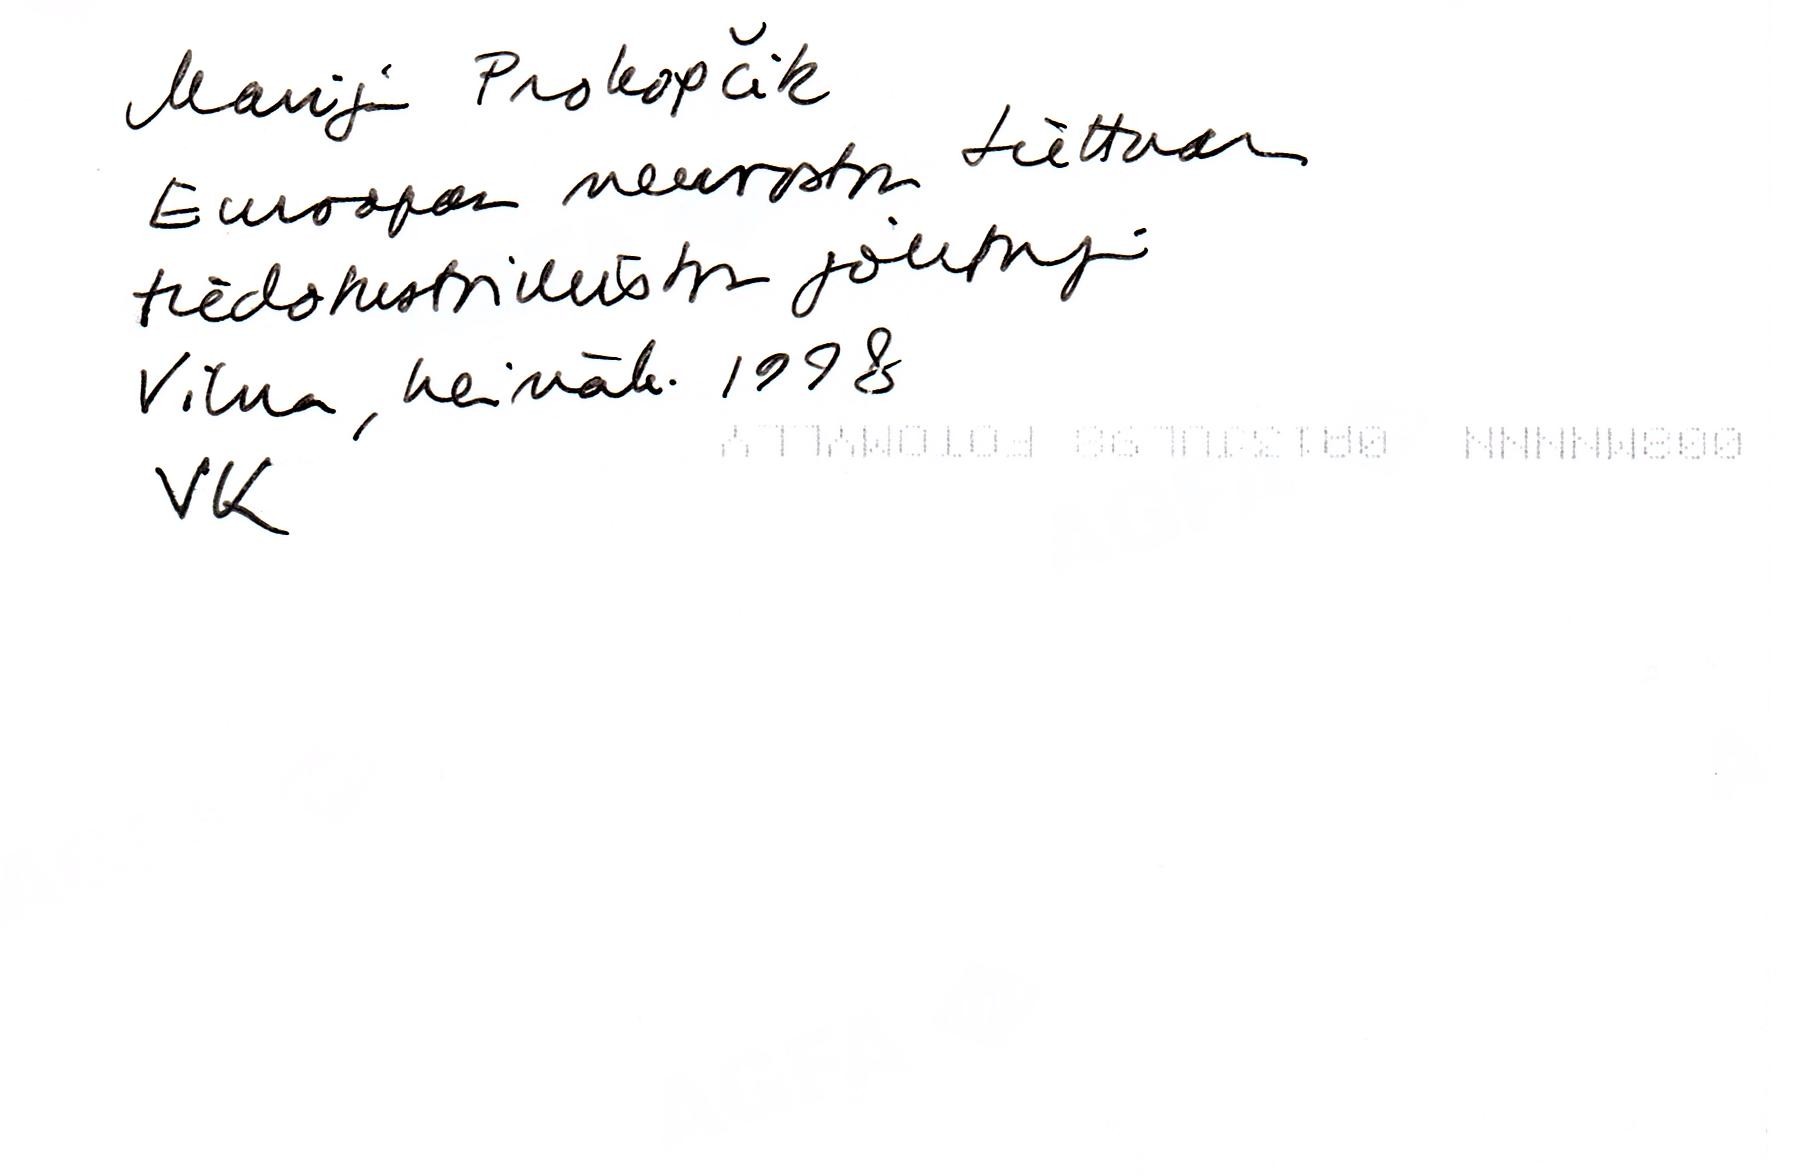 Marija Prokopčik
Euroopan neuvoston Liettuan
tiedotustoimiston johtaja
Vilna, heinäk. 1998
VK
AGFA
AGFA